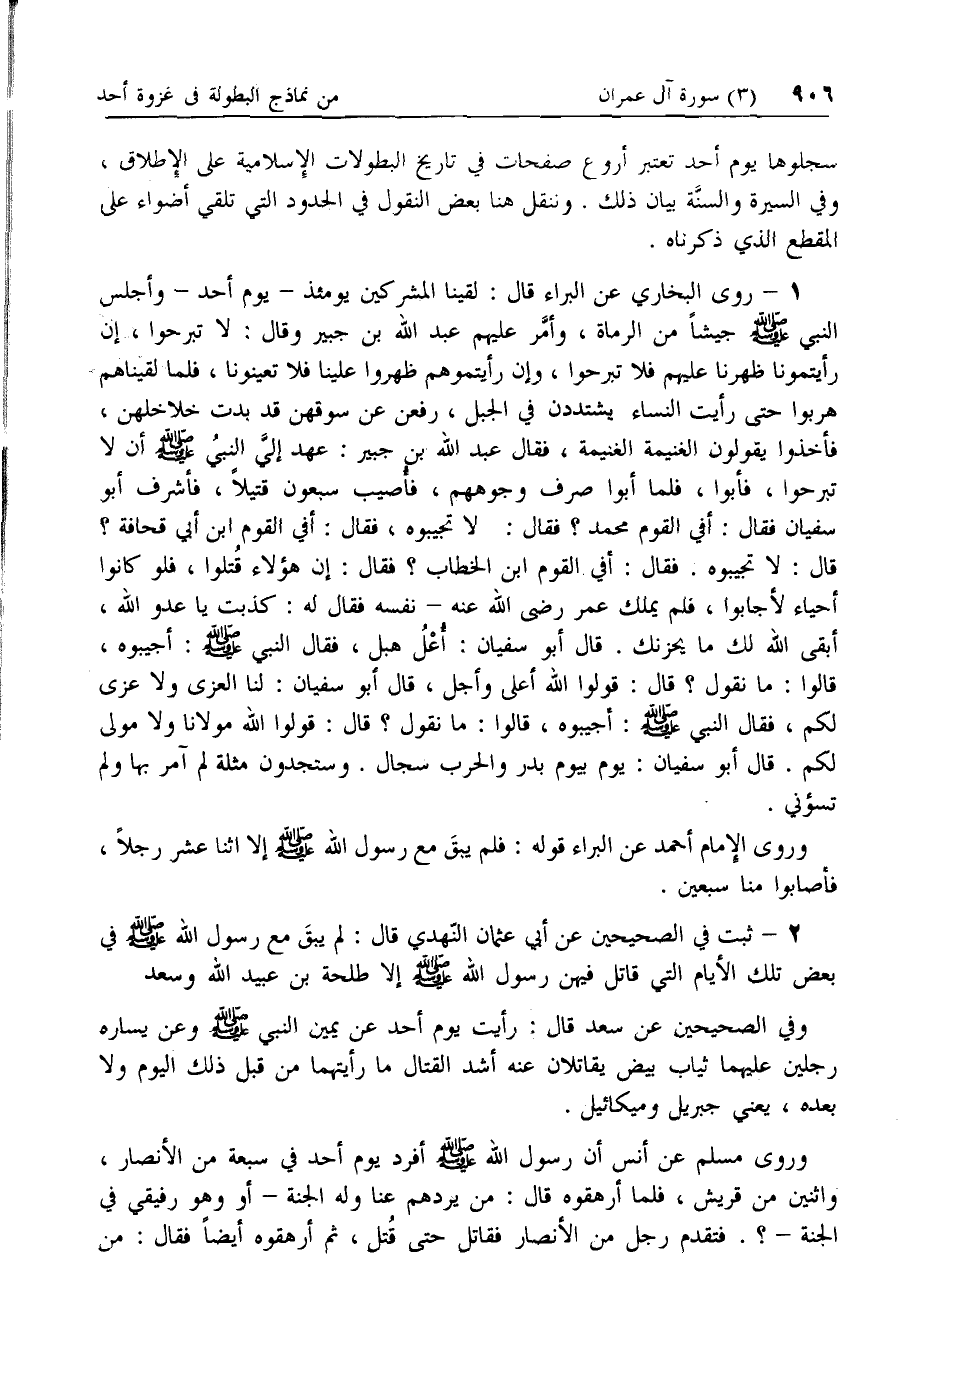 ٩٠٦ (٣) سورة آل عمران من نماذج البطولة في غزوة أحد
سجلوها يوم أحد تعتبر أروع صفحات في تاريخ البطولات الإسلامية على الإطلاق ،
وفي السيرة والسنَّة بيان ذلك . وننقل هنا بعض النقول في الحدود التي تلقي أضواء على
المقطع الذي ذكرناه .
١ – روى البخاري عن البراء قال : لقينا المشركين يومئذ – يوم أحد – وأجلس
النبي ﷺ جيشاً من الرماة ، وأمَّر عليهم عبد الله بن جبير وقال : لا تبرحوا ، إن
رأيتمونا ظهرنا عليهم فلا تبرحوا ، وإن رأيتموهم ظهروا علينا فلا تعينونا ، فلما لقيناهم
هربوا حتى رأيت النساء يشتددن في الجبل ، رفعن عن سوقهن قد بدت خلاخلهن ،
فأخذوا يقولون الغنيمة الغنيمة ، فقال عبد الله بن جبير : عهد إليَّ النبيُ ﷺ أن لا
تبرحوا ، فأبوا ، فلما أبوا صرف وجوههم ، فأصيب سبعون قتيلاً ، فأشرف أبو
سفيان فقال : أفي القوم محمد ؟ فقال : لا تجيبوه ، فقال : أفي القوم ابن أبي قحافة ؟
قال : لا تجيبوه . فقال : أفي القوم ابن الخطاب ؟ فقال : إن هؤلاء قُتلوا ، فلو كانوا
أحياء لأجابوا ، فلم يملك عمر رضى الله عنه – نفسه فقال له : كذبت يا عدو الله ،
أبقى الله لك ما يحزنك . قال أبو سفيان : أُعْلُ هبل ، فقال النبي ﷺ : أجيبوه ،
قالوا : ما نقول ؟ قال : قولوا الله أعلى وأجل ، قال أبو سفيان : لنا العزى ولا عزى
لكم ، فقال النبي ﷺ : أجيبوه ، قالوا : ما نقول ؟ قال : قولوا الله مولانا ولا مولى
لكم . قال أبو سفيان : يوم بيوم بدر والحرب سجال . وستجدون مثلة لم آمر بها ولم
تسؤني .
وروى الإمام أحمد عن البراء قوله : فلم يبقَ مع رسول الله ﷺ إلا اثنا عشر رجلاً ،
فأصابوا منا سبعين .
٢ – ثبت في الصحيحين عن أبي عثمان النّهدي قال : لم يبقَ مع رسول الله ﷺ في
بعض تلك الأيام التي قاتل فيهن رسول الله ﷺ إلا طلحة بن عبيد الله وسعد
وفي الصحيحين عن سعد قال : رأيت يوم أحد عن يمين النبي ﷺ وعن يساره
رجلين عليهما ثياب بيض يقاتلان عنه أشد القتال ما رأيتهما من قبل ذلك اليوم ولا
بعده ، يعني جبريل وميكائيل .
وروى مسلم عن أنس أن رسول الله ﷺ أفرد يوم أحد في سبعة من الأنصار ،
واثنين من قريش ، فلما أرهقوه قال : من يردهم عنا وله الجنة – أو وهو رفيقي في
الجنة – ؟ . فتقدم رجل من الأنصار فقاتل حتى قُتل ، ثم أرهقوه أيضاً فقال : من